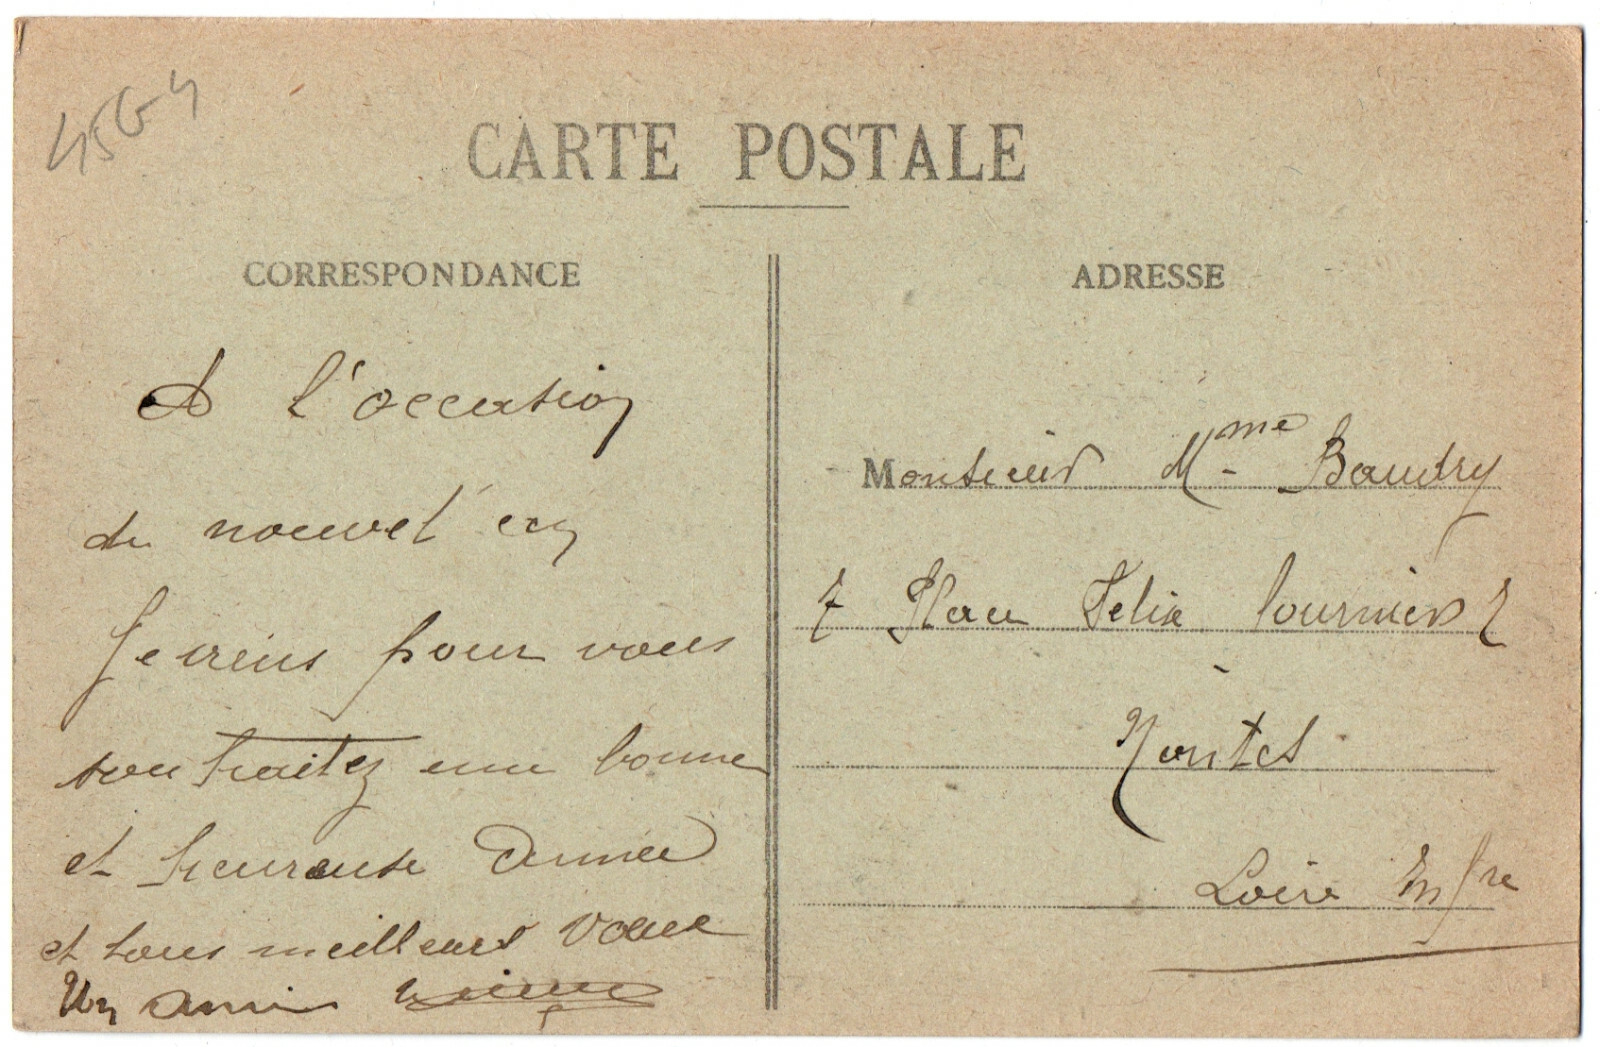 CARTE POSTALE
CORRESPONDANCE
A l'occasion
du nouvel an
Je viens pour vous
souhaitez une bonne
et heureuse année
et tous meilleurs voeux
Un ami
ADRESSE
Monsieur Mme Baudry
7 Place Felix Fournier 7
Nantes
Loire Infre